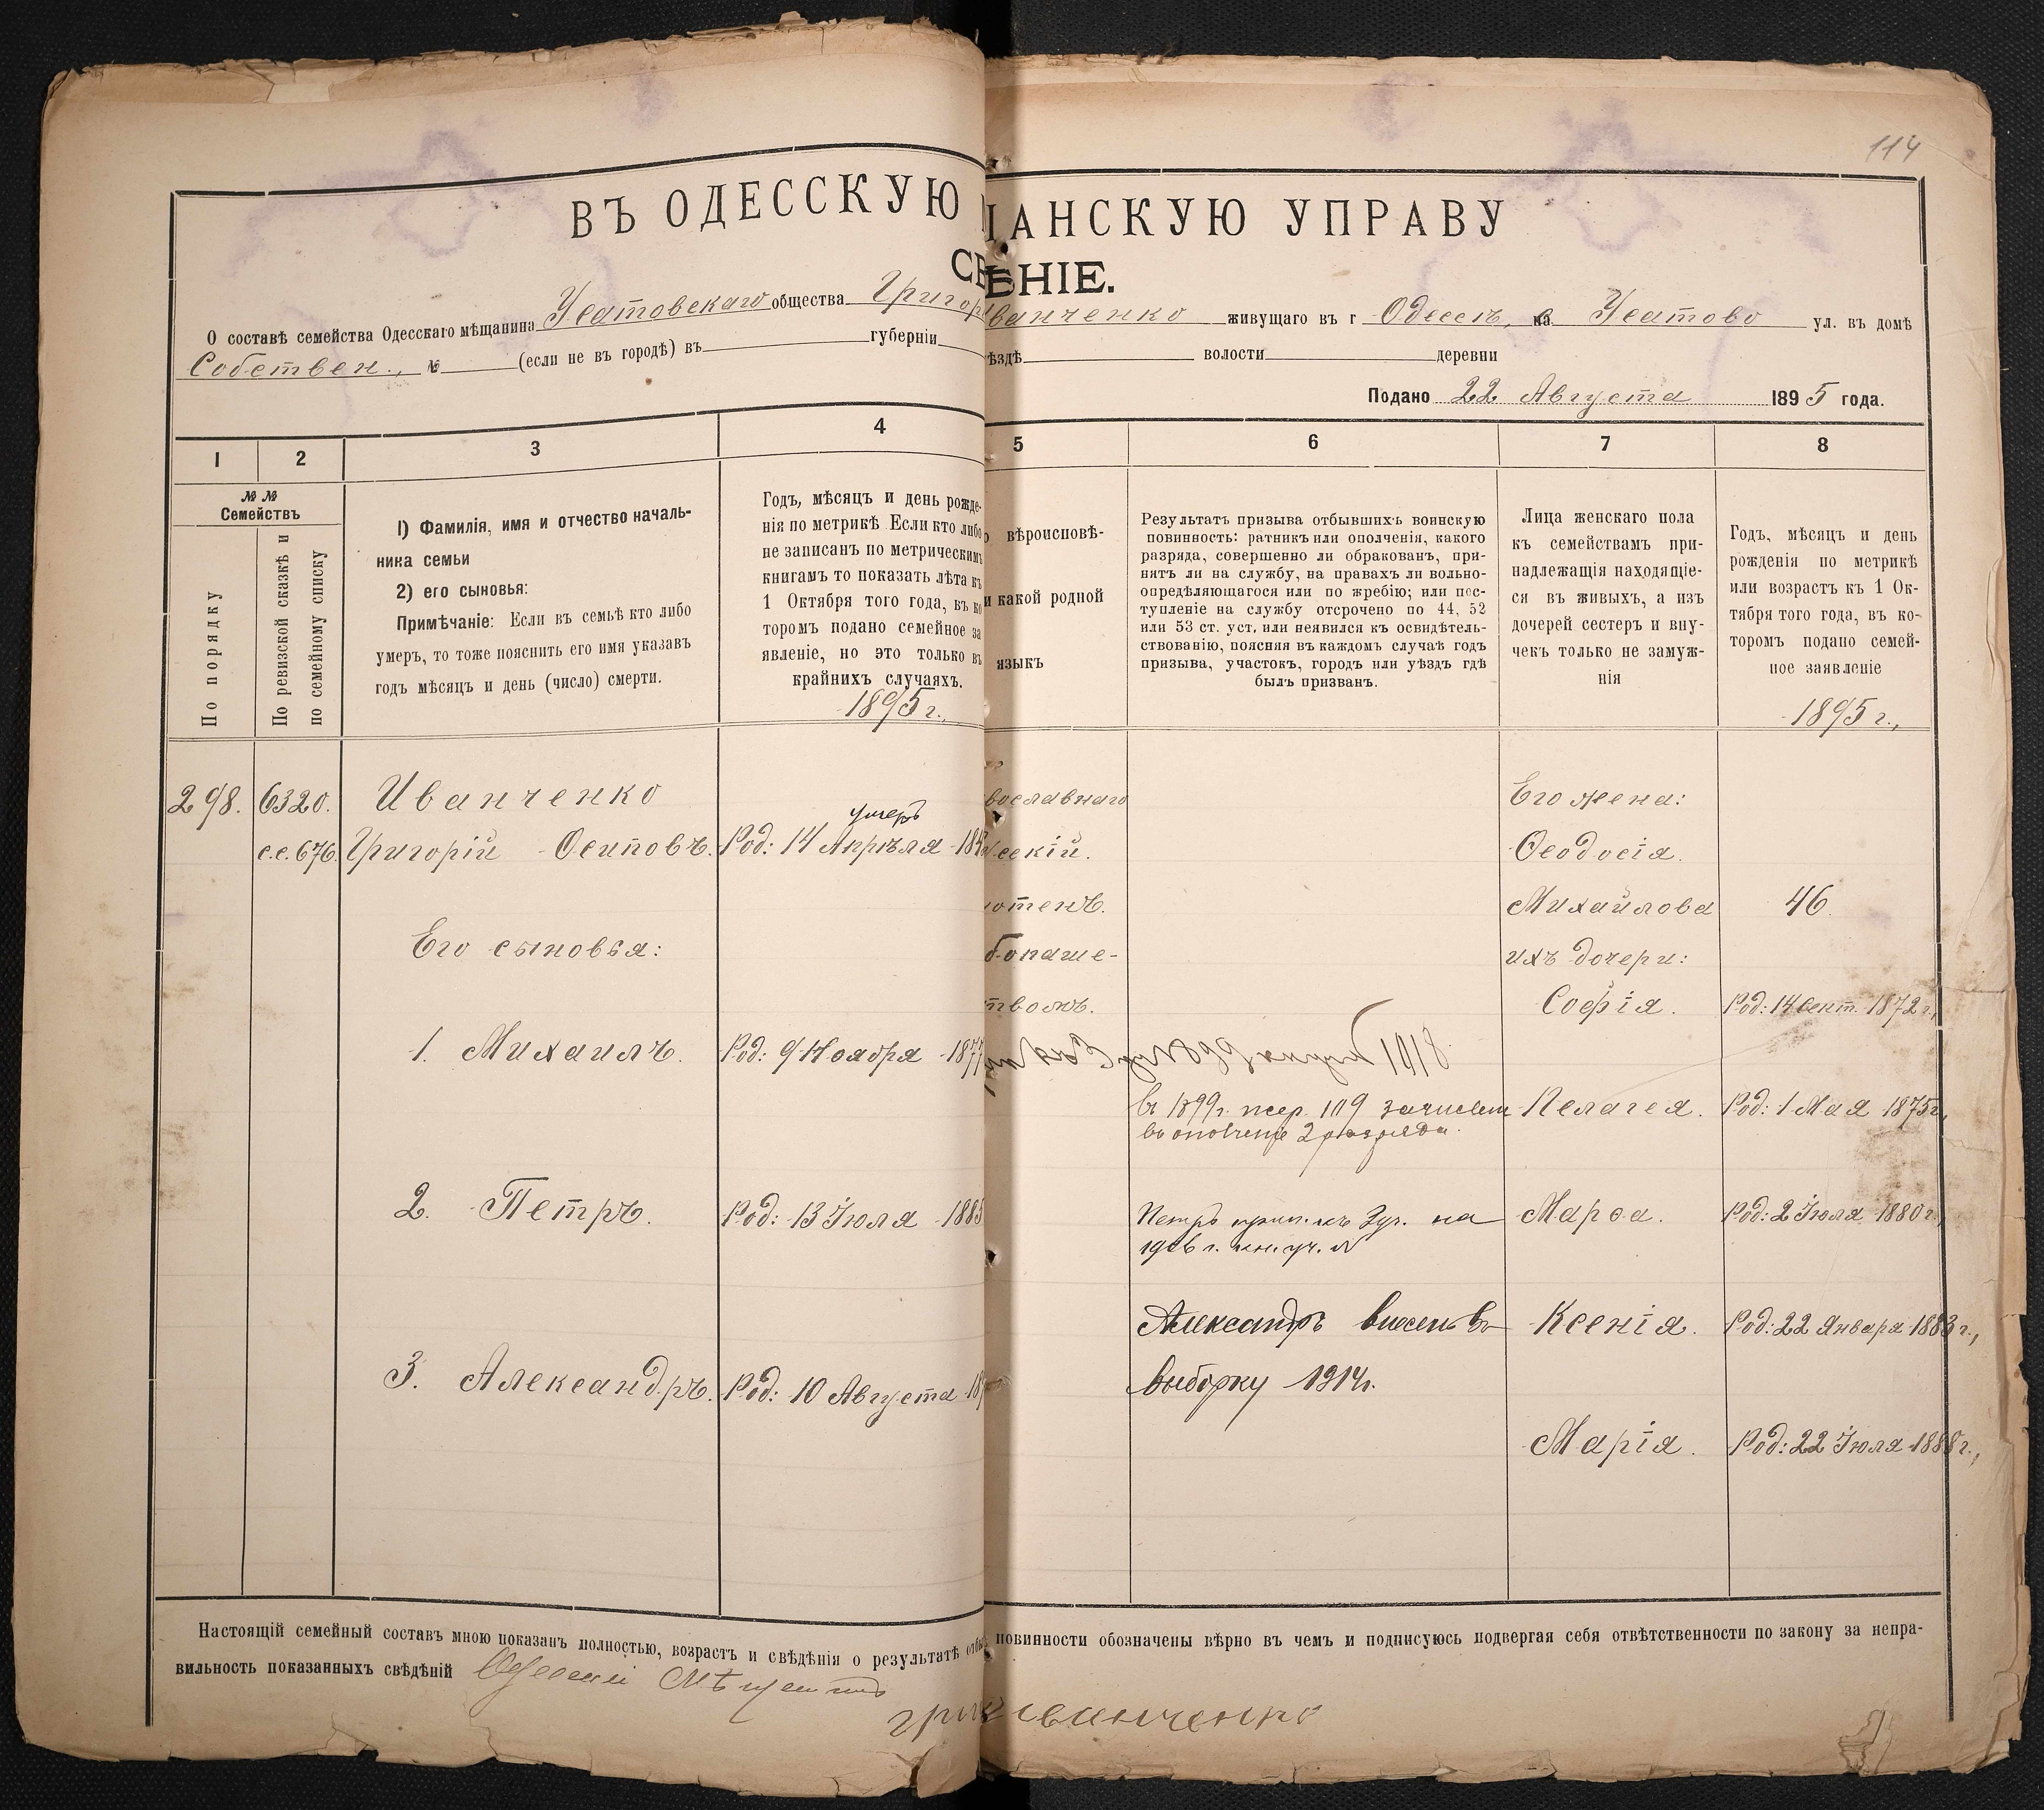 114
ВЪ ОДЕССКУЮ
ЩАНСКУЮ УПРАВУ
ѢНІЕ.
О составѣ семейства Одесскаго мѣщанина Усатовскаго общества Григор
ванченко живущаго въ г Одессѣ, с. Усатово ул. въ домѣ
Собствен., № (если не въ городѣ) въ губерніи
ѣздѣ волости деревни
Подано 22 Августа 1895 года.
1 2 3 4 5 6 7 8
№ №
Семействъ
По порядку
По ревизской сказкѣ и
по семейному списку
1) Фамилія, имя и отчество началь-
ника семьи
2) его сыновья:
Примѣчаніе: Если въ семьѣ кто либо
умеръ, то тоже пояснить его имя указавъ
годъ мѣсяцъ и день (число) смерти.
Годъ, мѣсяцъ и день рожде-
нія по метрикѣ Если кто либо
не записанъ по метрическимъ
книгамъ то показать лѣта къ
1 Октября того года, въ ко
торомъ подано семейное за
явленіе, но это только въ
крайнихъ случаяхъ.
1895 г.,
вѣроисповѣ-
и какой родной
языкъ
Результатъ призыва отбывшихъ воинскую
повинность: ратникъ или ополченія, какого
разряда, совершенно ли обракованъ, при-
нятъ ли на службу, на правахъ ли вольно-
опредѣляющагося или по жребію; или пос-
тупленіе на службу отсрочено по 44, 52
или 53 ст. уст. или неявился къ освидѣтель-
ствованію, поясняя въ каждомъ случаѣ годъ
призыва, участокъ, городъ или уѣздъ гдѣ
былъ призванъ.
Лица женскаго пола
къ семействамъ при-
надлежащія находящіе-
ся въ живыхъ, а изъ
дочерей сестеръ и вну-
чекъ только не замуж-
нія
Годъ, мѣсяцъ и день
рожденія по метрикѣ
или возрастъ къ 1 Ок-
тября того года, въ ко-
торомъ подано семей-
ное заявленіе
1895 г.,
298. 6320. Иванченко
умеръ
с.с. 676. Григорій Осиповъ. Род: 14 Апрѣля
Его сыновья:
1. Михаилъ. Род: 9 Ноября 1877
2. Петръ. Род: 13 Іюля 1885
3. Александръ. Род: 10 Августа
вославнаго
сскій.
отенъ.
бопаше-
твомъ.
1918
въ 1899 г. жер. 109 зачислен
въ ополченіе 2 разряда.
Петръ прип. къ 3 уч. на
1906 г.
Александръ внесенъ въ
выборку 1914 г.
Его жена:
Ѳеодосія.
Михайлова 46
ихъ дочери:
Софія. Род: 14 Сент. 1872 г.,
Пелагея. Род: 1 Мая 1875 г.,
Марѳа. Род: 2 Іюля 1880 г.,
Ксенія. Род: 22 Января 1883 г.,
Марія. Род: 22 Іюля 1888 г.,
Настоящій семейный составъ мною показанъ полностью, возрастъ и свѣдѣнія о результатѣ отбы
повинности обозначены вѣрно въ чемъ и подписуюсь подвергая себя отвѣтственности по закону за непра-
вильность показанныхъ свѣдѣній Одесскій Мѣщанинъ
Григ Иванченко